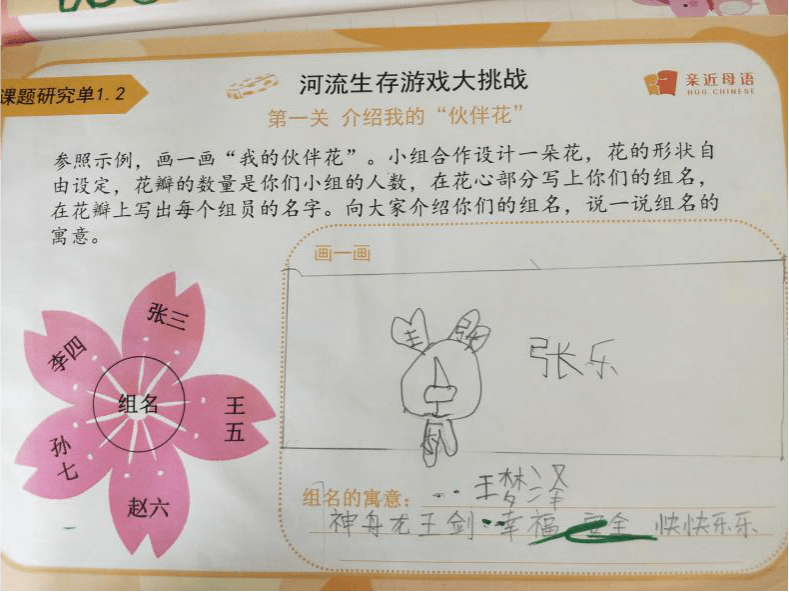 课题研究单1.2
河流生存游戏大挑战
亲近母语
HUG CHINESE
第一关 介绍我的“伙伴花”
参照示例，画一画“我的伙伴花”。小组合作设计一朵花，花的形状自
由设定，花瓣的数量是你们小组的人数，在花心部分写上你们的组名，
在花瓣上写出每个组员的名字。向大家介绍你们的组名，说一说组名的
寓意。
画一画
张三
李四
组名
王五
孙七
赵六
王 张
张乐
组名的寓意：王梦泽
神舟龙王剑 幸福 安全 快快乐乐